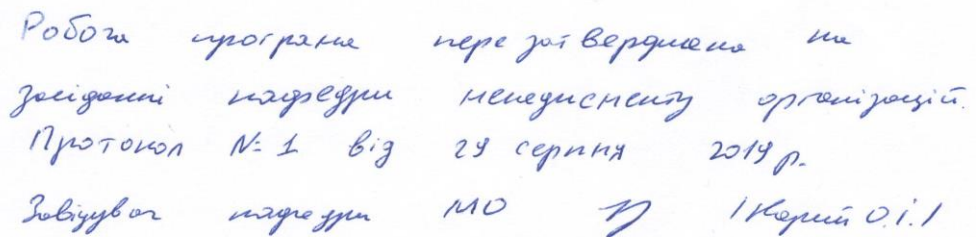 Робоча програма перезатверджена на
засіданні кафедри менеджменту організацій.
Протокол № 1 від 29 серпня 2019 р.
Завідувач кафедри МО /Карий О.І./